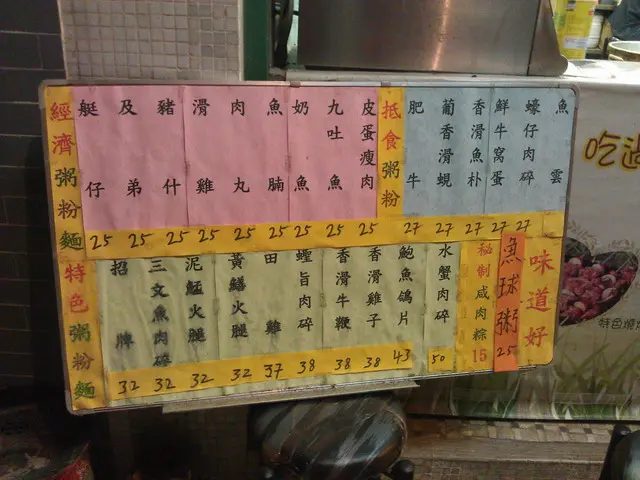 經濟粥粉麵
艇仔
及弟
豬什
滑雞
肉丸
魚腩
奶魚
九吐魚
皮蛋瘦肉
抵食粥粉
肥牛
葡香滑蜆
香滑魚朴
鮮牛窩蛋
蠔仔肉碎
魚雲
25 25 25 25 25 25 25 25 25 27 27 27 27 27
特色粥粉麵
招牌
三文魚肉碎
泥鯭火腿
黃鱔火腿
田雞
蟶旨肉碎
香滑牛鞭
香滑雞子
鮑魚鴿片
水蟹肉碎
32 32 32 32 37 38 38 38 43 50
秘制咸肉粽15
魚球粥25
味道好
吃過
特色燒